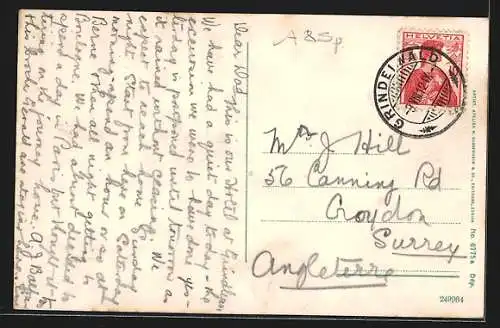 Dear Dad, This is our Hotel at Grindelwald
We have had a quiet day today - the
excursion we were to have done yes-
terday is postponed until tomorrow as
it rained without ceasing. We
expect to reach home Sunday
night. Start from here on Saturday
morning, spend an hour or so at
Berne & then all night getting to
Boulogne. We had almost decided to
spend a day in Paris, but thought it
on the journey home. A.J. Balfour
this hotel
A B Sp.
HELVETIA
GRINDELWALD
Mr J Hill
56 Canning Rd
Croydon
Surrey
Angleterre
No. 6775a Dép.
249964